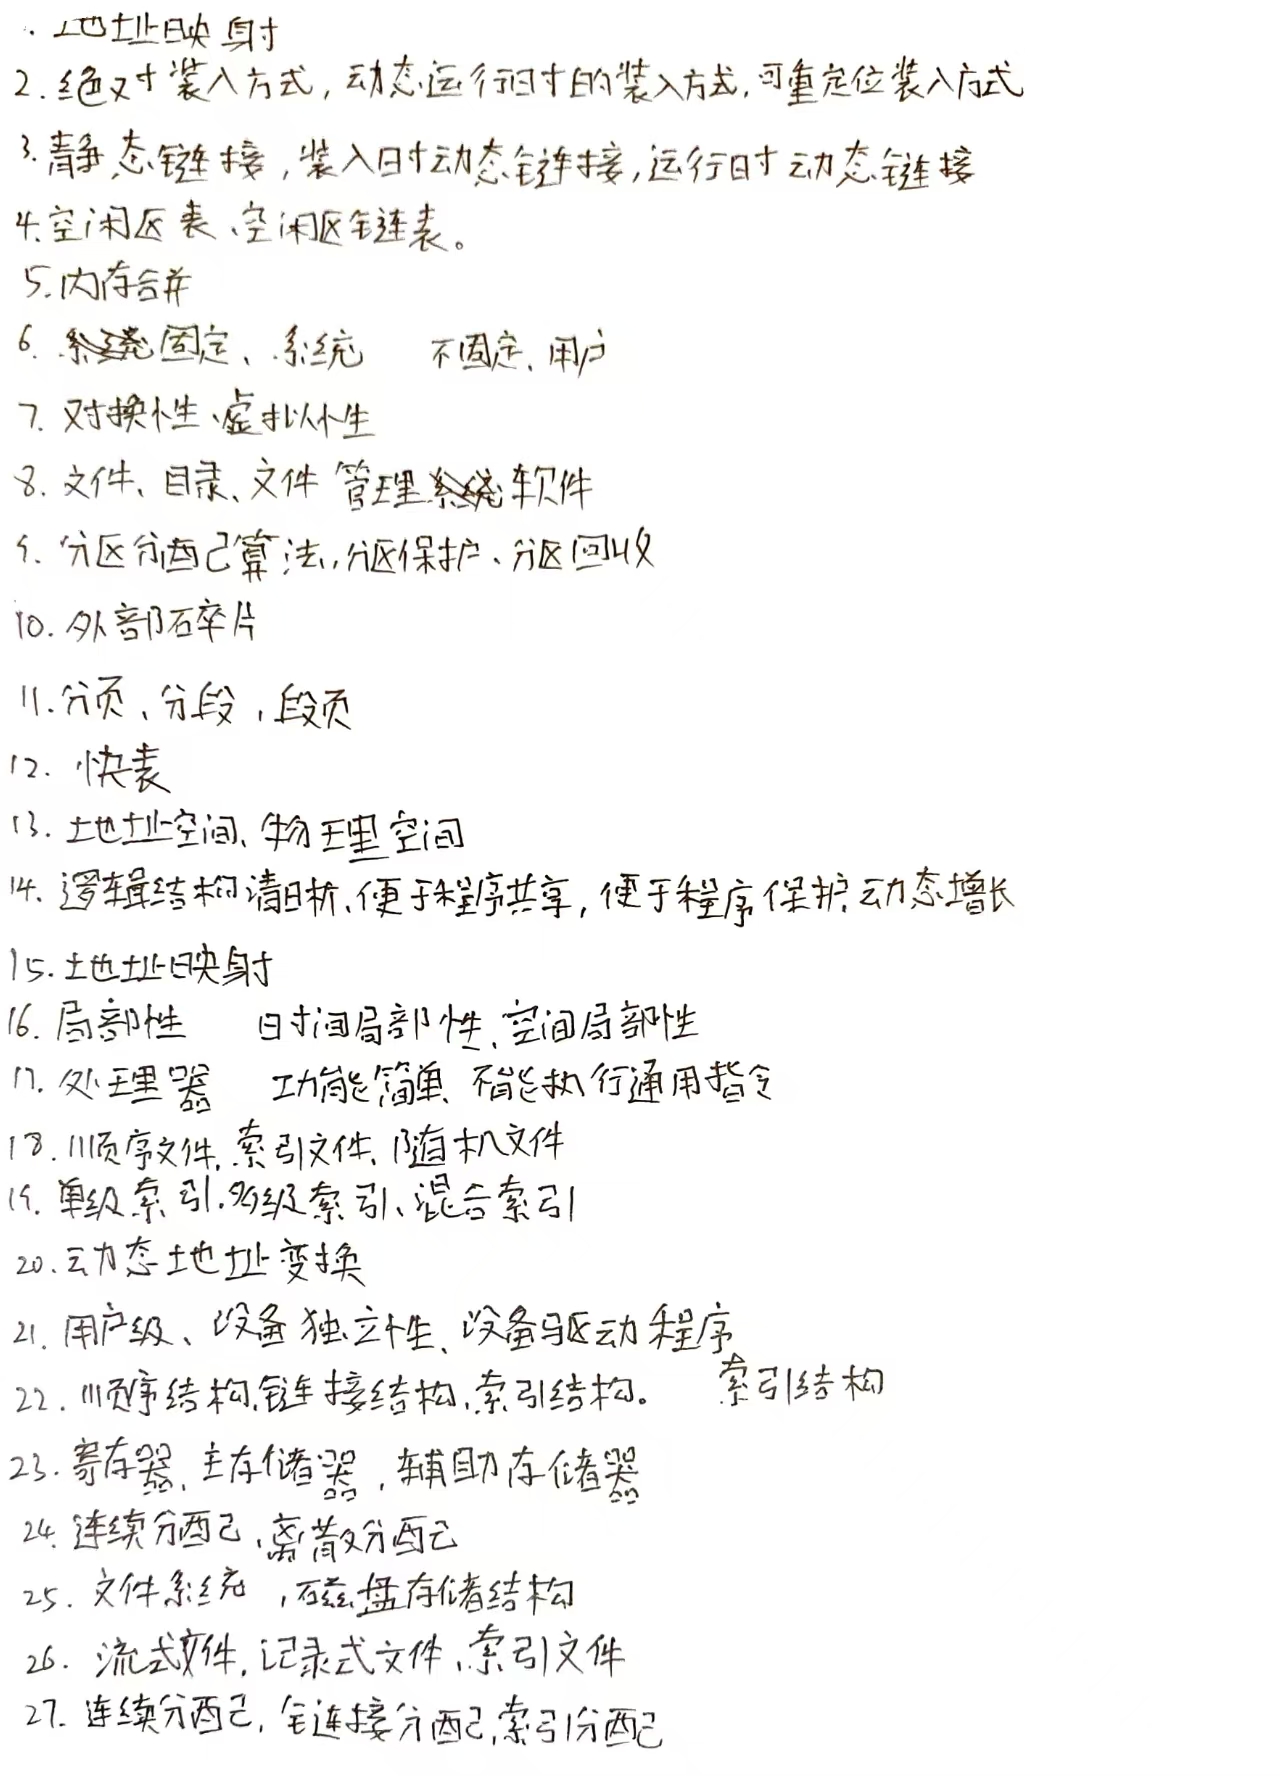 . 地址映射
2. 绝对装入方式, 动态运行时的装入方式, 可重定位装入方式
3. 静态链接, 装入时动态链接, 运行时动态链接
4. 空闲区表、空闲区链表。
5. 内存合并
6. 固定、系统 不固定、用户
7. 对换性、虚拟性
8. 文件、目录、文件管理软件
9. 分区分配算法, 分区保护、分区回收
10. 外部碎片
11. 分页、分段, 段页
12. 快表
13. 地址空间、物理空间
14. 逻辑结构清晰、便于程序共享, 便于程序保护、动态增长
15. 地址映射
16. 局部性 时间局部性、空间局部性
17. 处理器 功能简单、不能执行通用指令
18. 顺序文件, 索引文件、随机文件
19. 单级索引、多级索引、混合索引
20. 动态地址变换
21. 用户级、设备独立性、设备驱动程序
22. 顺序结构, 链接结构, 索引结构。 索引结构
23. 寄存器, 主存储器, 辅助存储器
24. 连续分配, 离散分配
25. 文件系统, 磁盘存储结构
26. 流式文件, 记录式文件、索引文件
27. 连续分配, 链接分配, 索引分配